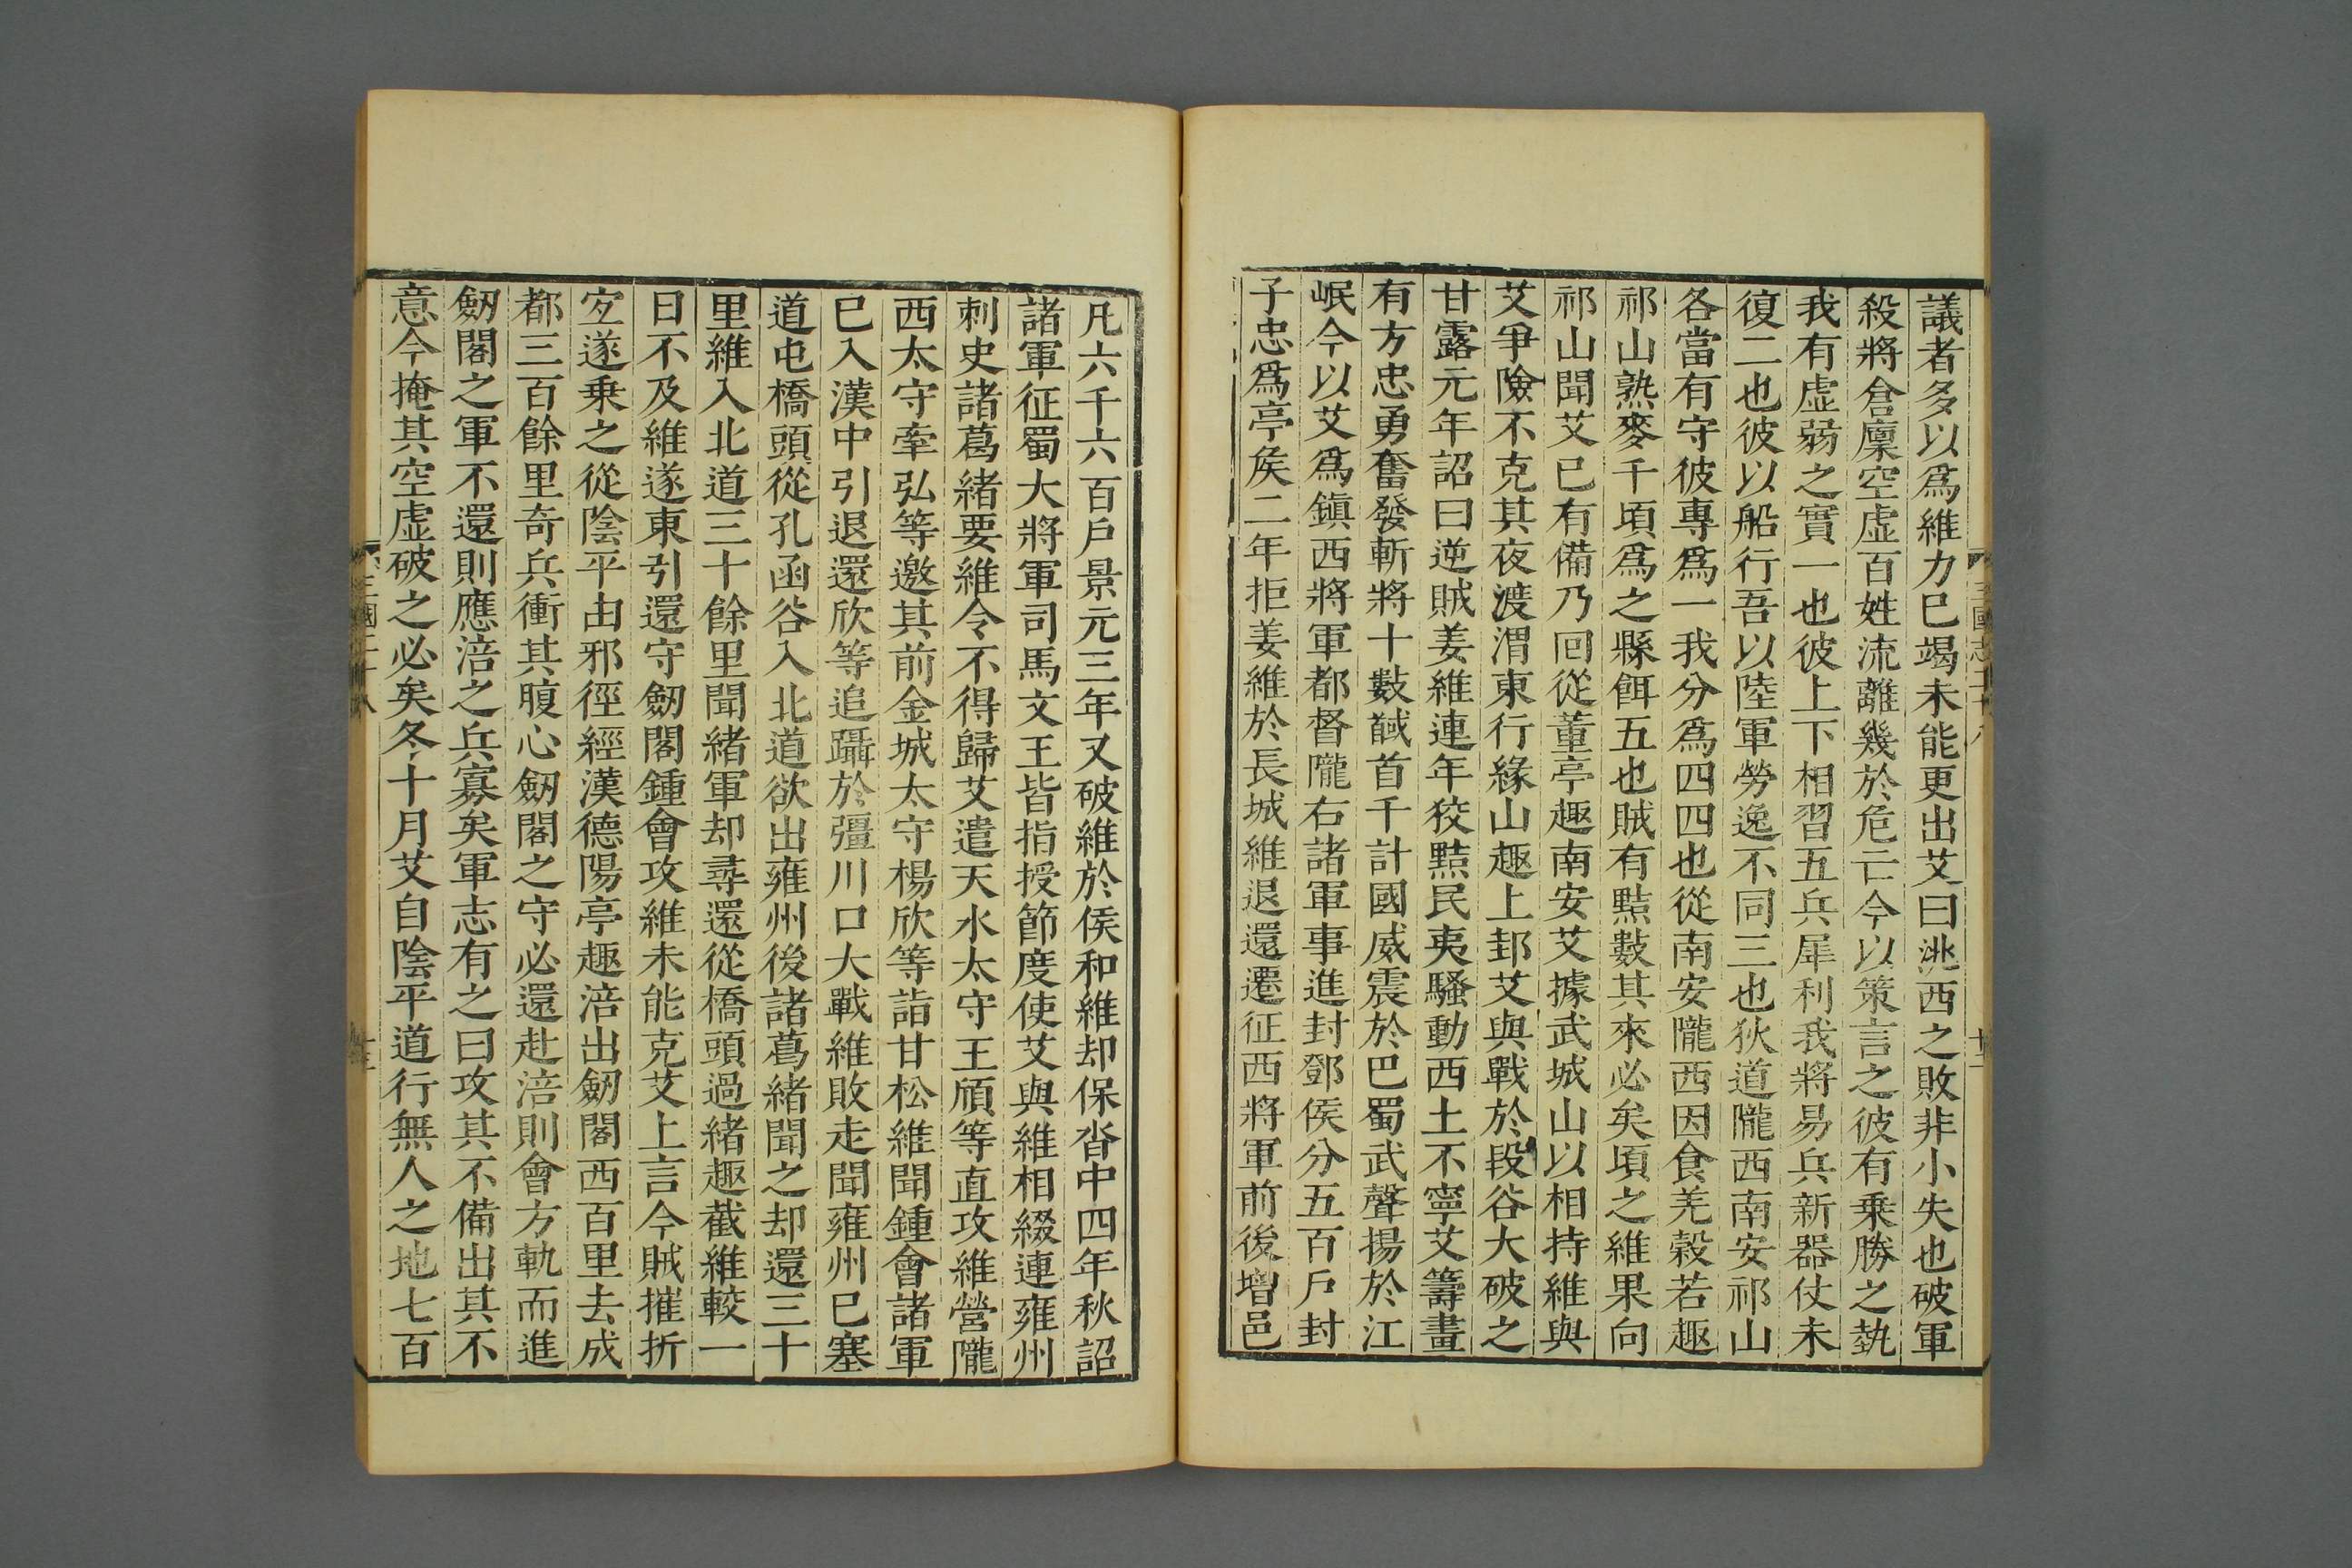 議者多以爲維力已竭未能更出艾曰洮西之敗非小失也破軍
殺將倉廩空虛百姓流離幾於危亡今以策言之彼有乗勝之埶
我有虛弱之實一也彼上下相習五兵犀利我將易兵新器仗未
復二也彼以船行吾以陸軍勞逸不同三也狄道隴西南安祁山
各當有守彼專爲一我分爲四四也從南安隴西因食羌穀若趣
祁山熟麥千頃爲之縣餌五也賊有黠數其來必矣頃之維果向
祁山聞艾已有備乃回從董亭趣南安艾據武城山以相持維與
艾爭險不克其夜渡渭東行緣山趣上邽艾與戰於段谷大破之
甘露元年詔曰逆賊姜維連年狡黠民夷騷動西土不寧艾籌畫
有方忠勇奮發斬將十數馘首千計國威震於巴蜀武聲揚於江
岷今以艾爲鎮西將軍都督隴右諸軍事進封鄧侯分五百戶封
子忠爲亭侯二年拒姜維於長城維退還遷征西將軍前後增邑
凡六千六百戶景元三年又破維於侯和維却保沓中四年秋詔
諸軍征蜀大將軍司馬文王皆指授節度使艾與維相綴連雍州
刺史諸葛緒要維令不得歸艾遣天水太守王頎等直攻維營隴
西太守牽弘等邀其前金城太守楊欣等詣甘松維聞鍾會諸軍
已入漢中引退還欣等追躡於彊川口大戰維敗走聞雍州已塞
道屯橋頭從孔函谷入北道欲出雍州後諸葛緒聞之却還三十
里維入北道三十餘里聞緒軍却尋還從橋頭過緒趣截維較一
日不及維遂東引還守劒閣鍾會攻維未能克艾上言今賊摧折
宜遂乗之從陰平由邪徑經漢德陽亭趣涪出劒閣西百里去成
都三百餘里奇兵衝其腹心劒閣之守必還赴涪則會方軌而進
劒閣之軍不還則應涪之兵寡矣軍志有之曰攻其不備出其不
意今掩其空虛破之必矣冬十月艾自陰平道行無人之地七百